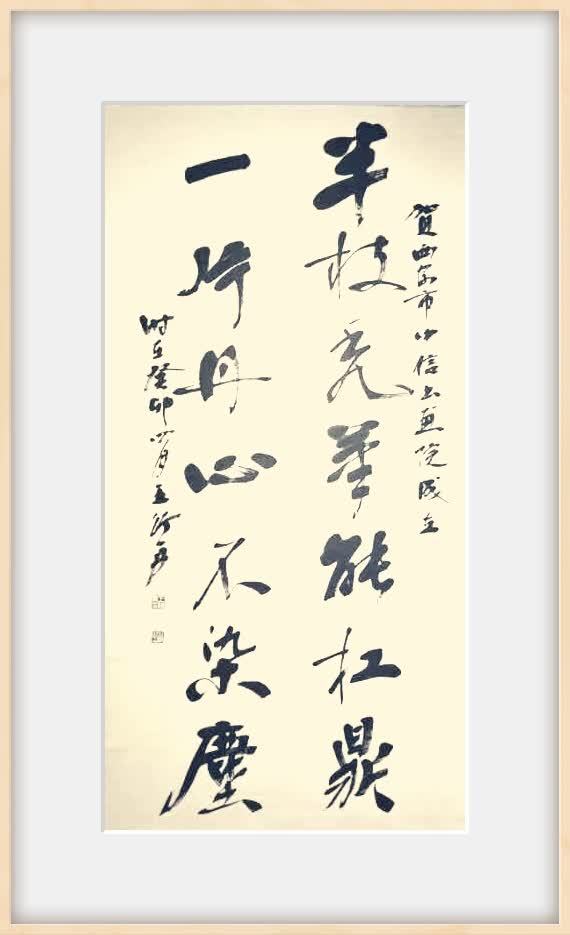 賀西安市中信书画院成立
半枝秃筆能扛鼎
一片丹心不染塵
时在癸卯四月